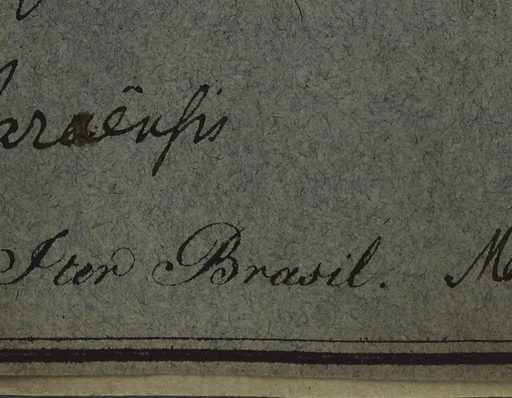 araënsis
Iter Brasil. M